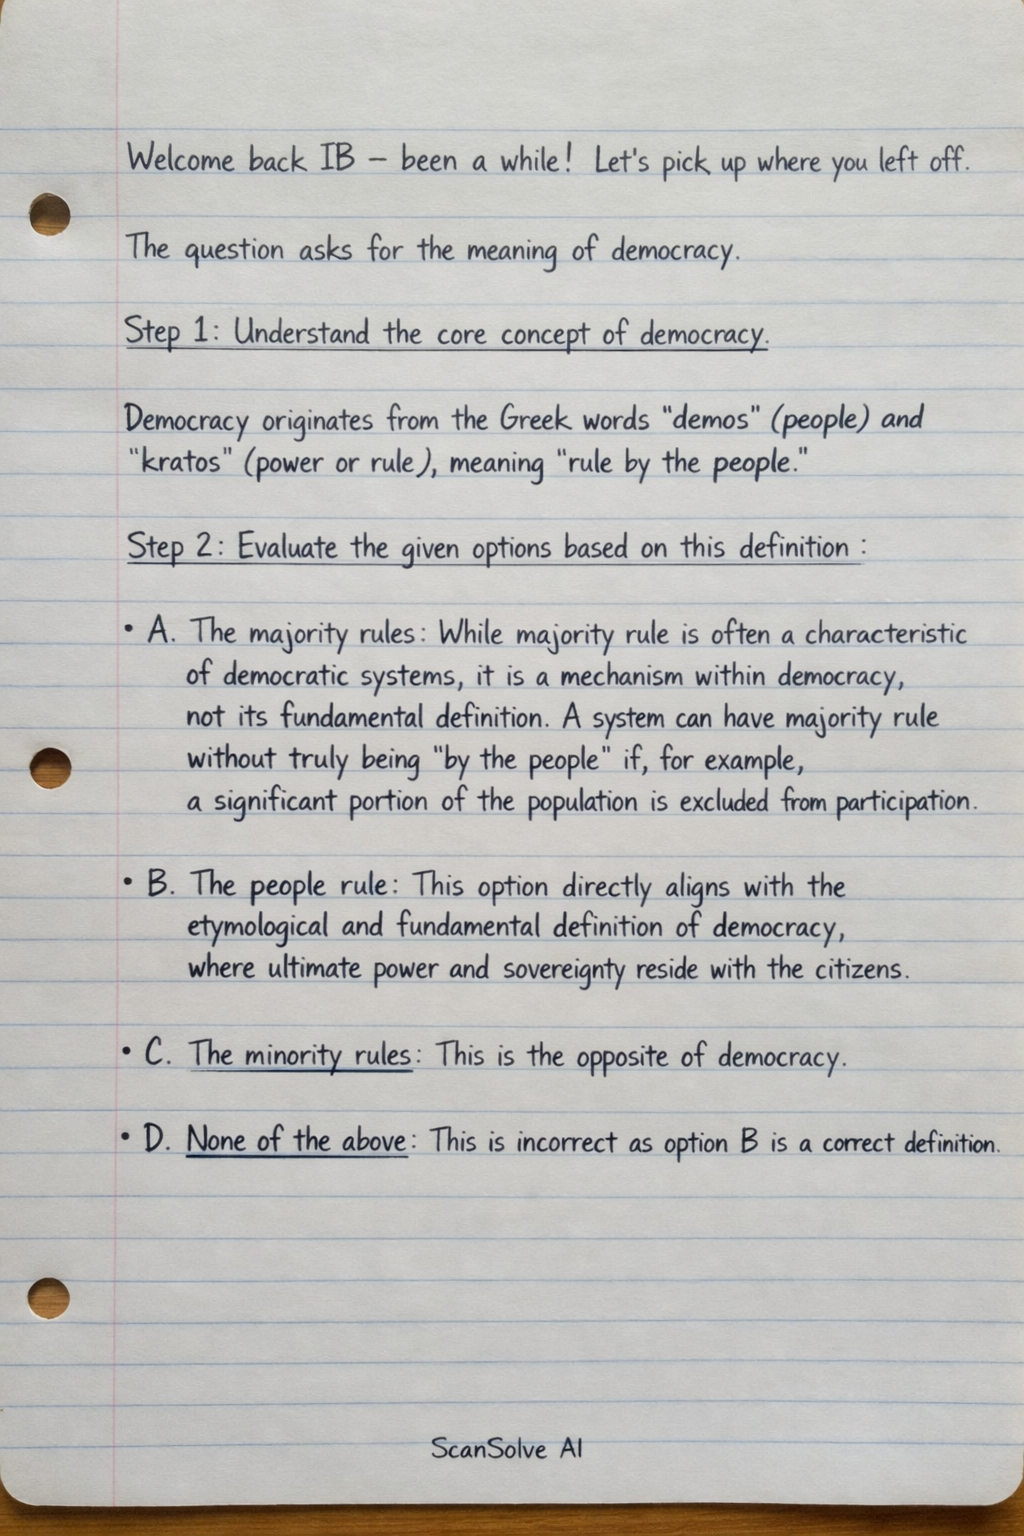 Welcome back IB – been a while! Let's pick up where you left off.
The question asks for the meaning of democracy.
Step 1: Understand the core concept of democracy.
Democracy originates from the Greek words "demos" (people) and
"kratos" (power or rule), meaning "rule by the people."
Step 2: Evaluate the given options based on this definition :
• A. The majority rules: While majority rule is often a characteristic
of democratic systems, it is a mechanism within democracy,
not its fundamental definition. A system can have majority rule
without truly being "by the people" if, for example,
a significant portion of the population is excluded from participation.
• B. The people rule: This option directly aligns with the
etymological and fundamental definition of democracy,
where ultimate power and sovereignty reside with the citizens.
• C. The minority rules: This is the opposite of democracy.
• D. None of the above: This is incorrect as option B is a correct definition.
ScanSolve AI